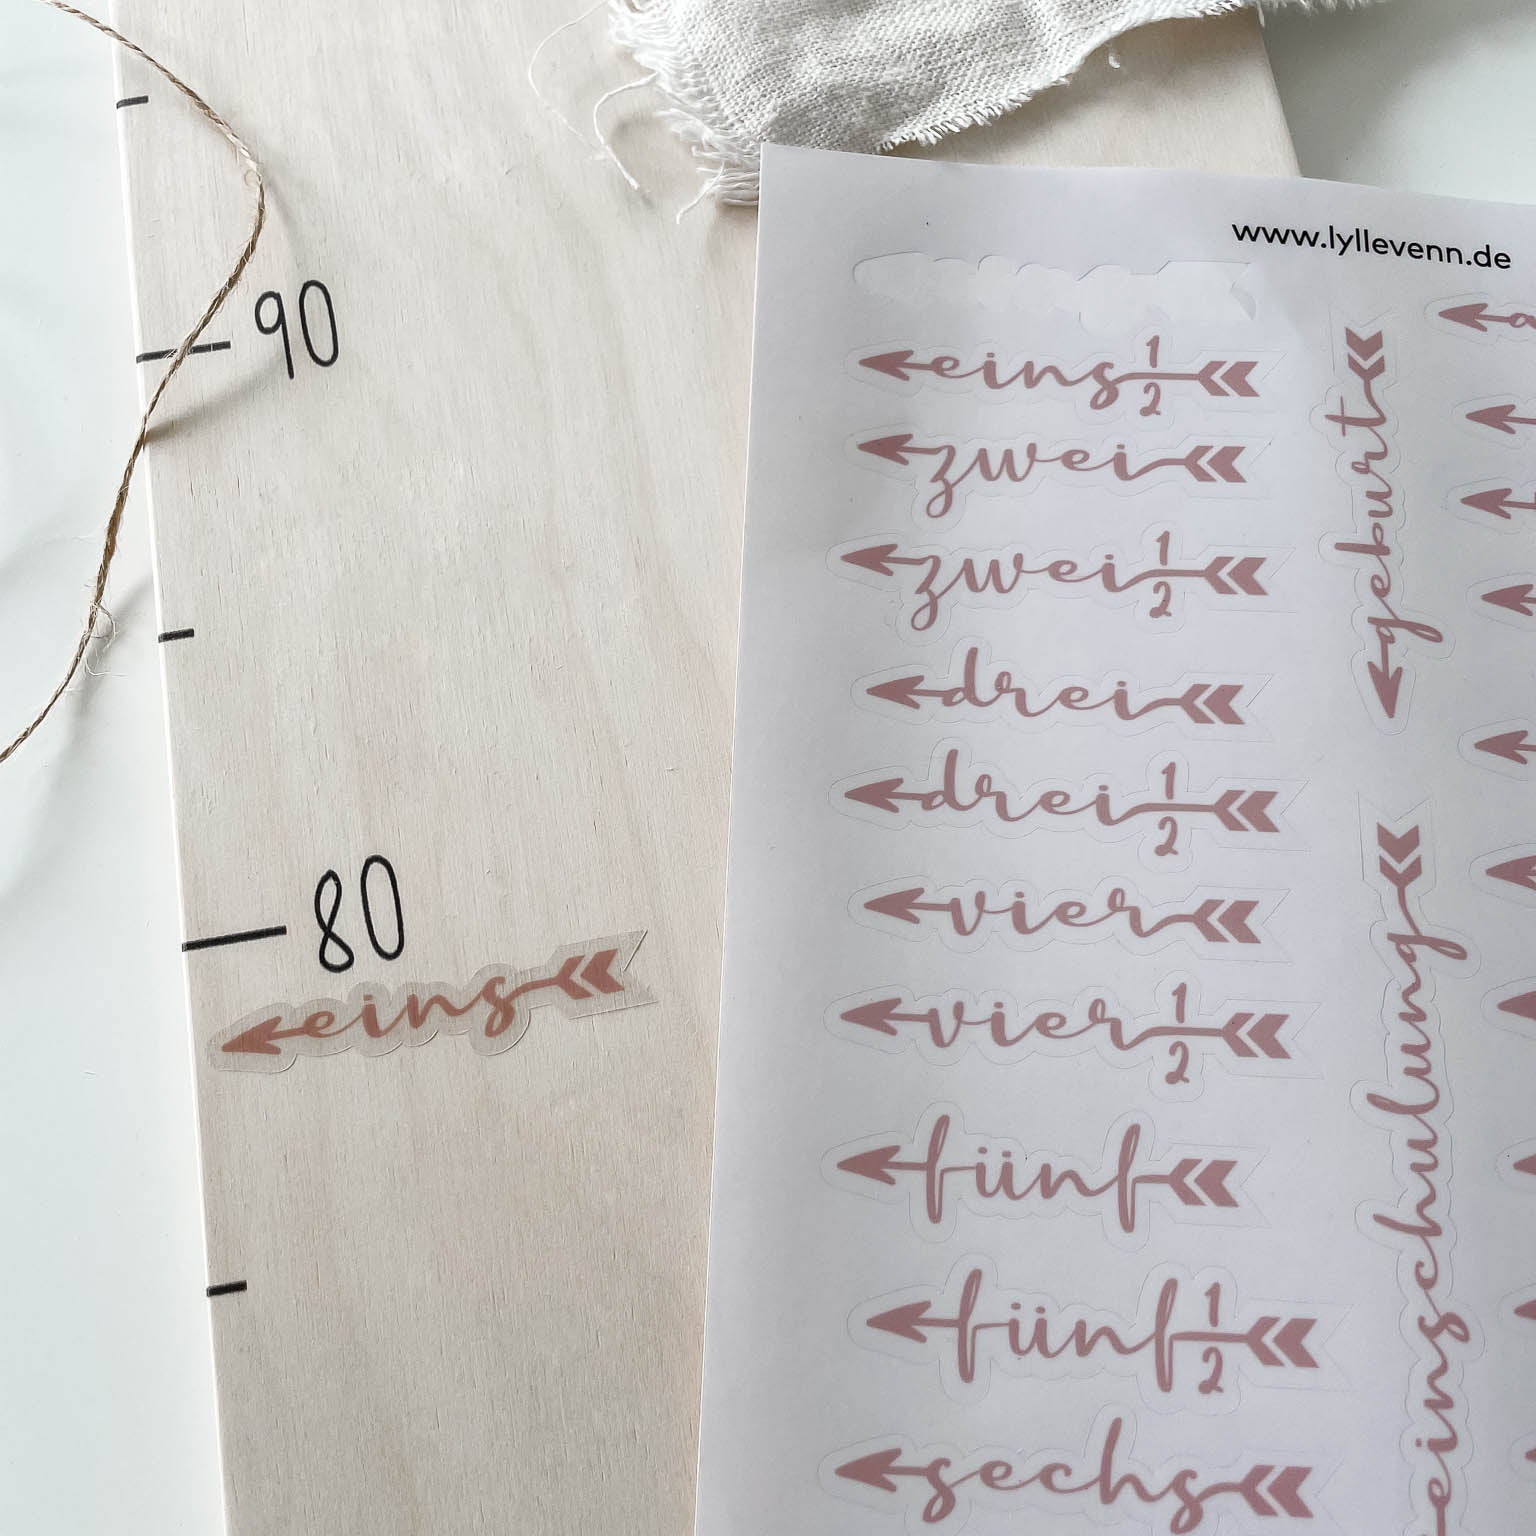 90
80
eins
www.lyllevenn.de
eins 1/2
zwei
zwei 1/2
drei
drei 1/2
vier
vier 1/2
fünf
fünf 1/2
sechs
geburt
einschulung